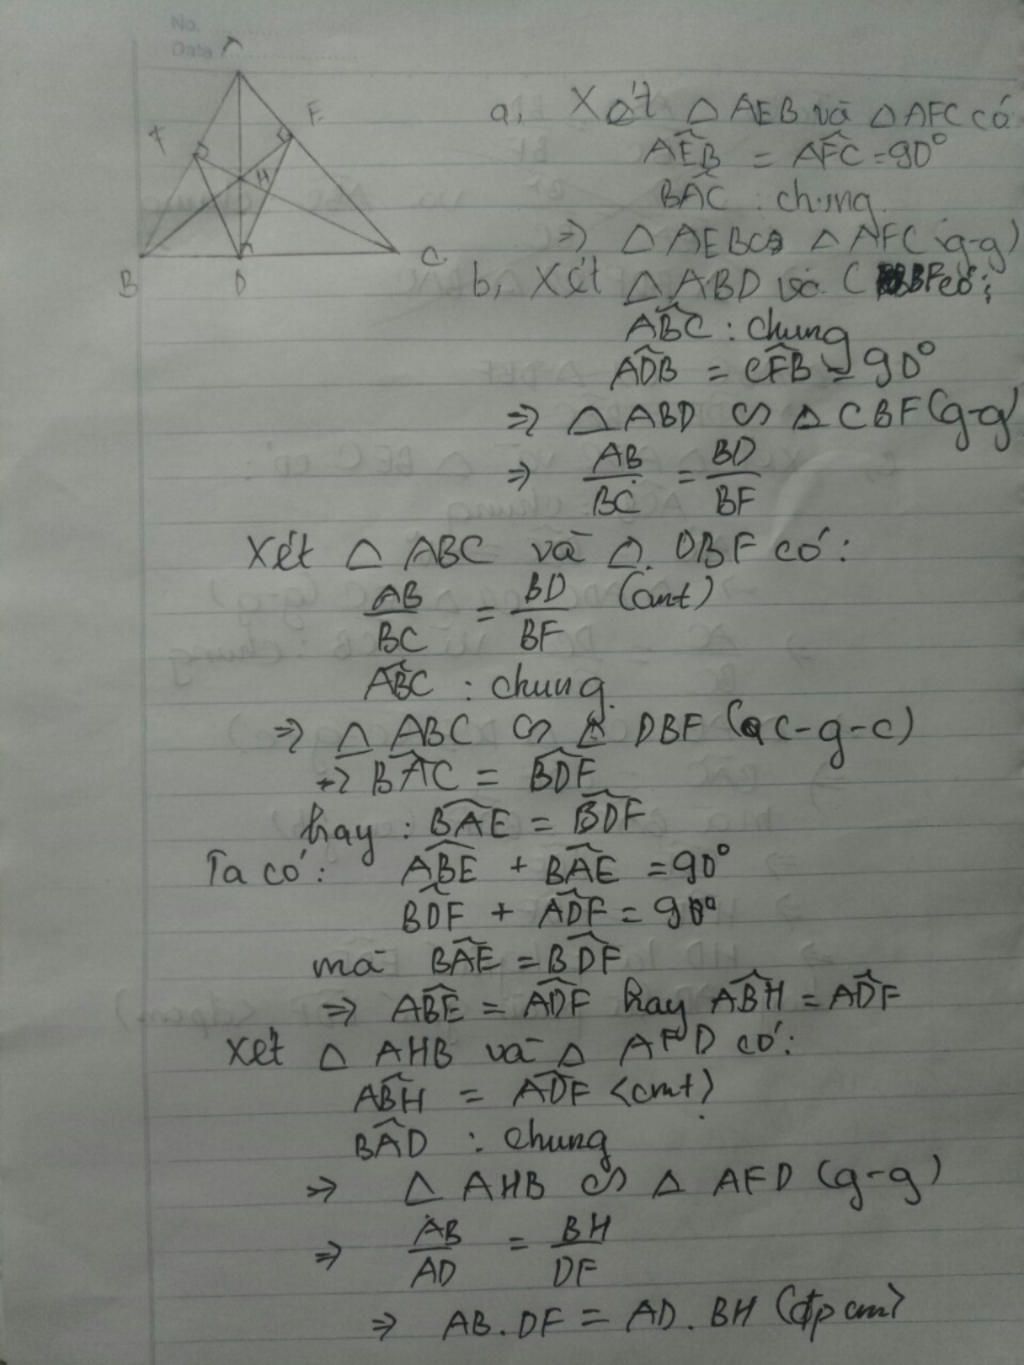 No.
Date
A
F
E
H
B
D
C
a, Xét △ AEB và △ AFC có
AÊB = AF̂C = 90°
BÂC : chung
=> △ AEB ∽ △ AFC (g-g)
b, Xét △ ABD và CBF có:
AB̂C : chung
AD̂B = CF̂B = 90°
=> △ ABD ∽ △ CBF (g-g)
=> AB/BC = BD/BF
Xét △ ABC và △ DBF có:
AB/BC = BD/BF (cmt)
AB̂C : chung
=> △ ABC ∽ △ DBF (c-g-c)
=> BÂC = BD̂F
hay : BÂE = BD̂F
Ta có: AB̂E + BÂE = 90°
BD̂F + AD̂F = 90°
mà BÂE = BD̂F
=> AB̂E = AD̂F hay AB̂H = AD̂F
Xét △ AHB và △ AFD có:
AB̂H = AD̂F <cmt>
BÂD : chung
=> △ AHB ∽ △ AFD (g-g)
=> AB/AD = BH/DF
=> AB.DF = AD.BH (đpcm)